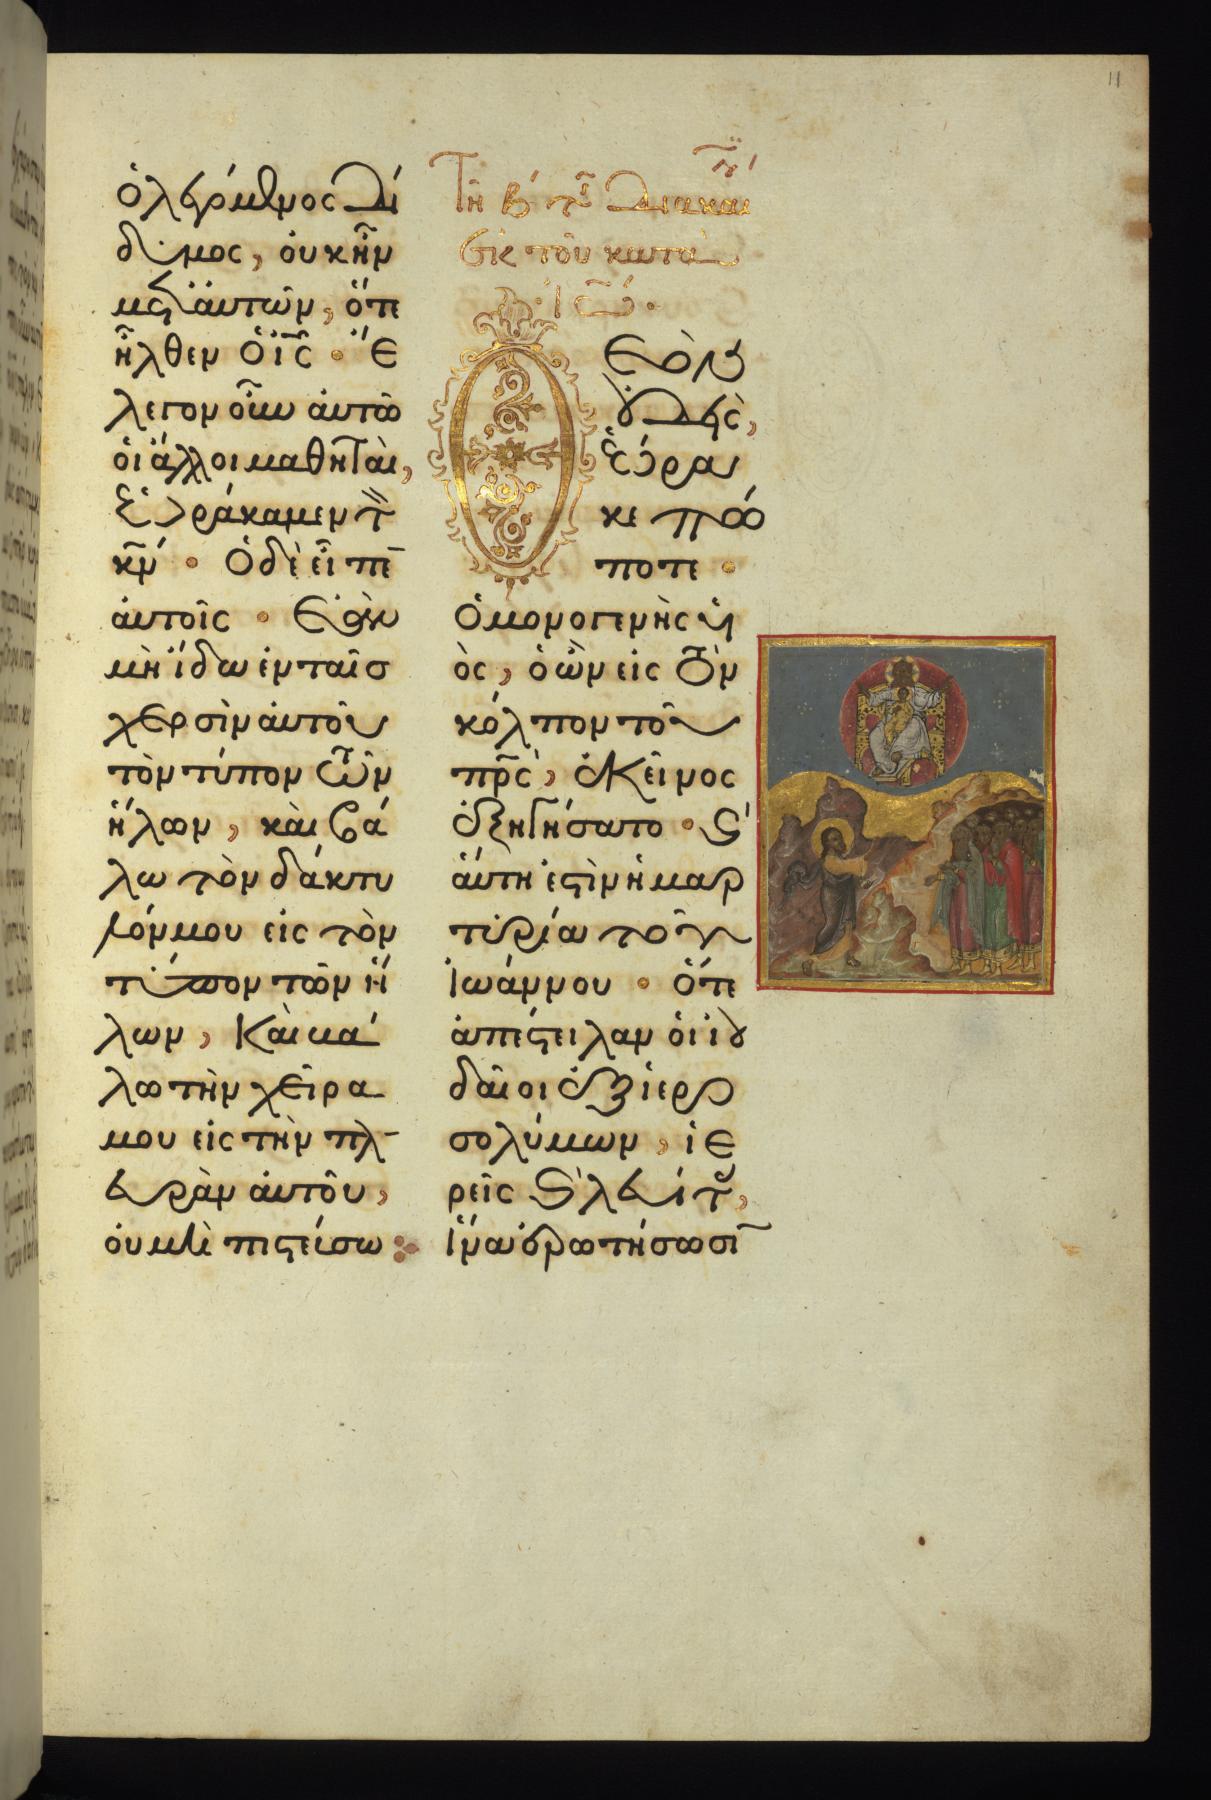 11
ὁ λεγόμενος Δί
δυμος, οὐκ ἦν
μετ' αὐτῶν, ὅτε
ἦλθεν ὁ ἰ̅ς̅ · Ἔ
λεγον οὖν αὐτῶ
οἱ ἄλλοι μαθηταὶ,
Ἑωράκαμεν τὸν
κ̅ν̅ · Ὁ δὲ εἶπεν
αὐτοῖς · Ἐὰν
μὴ ἴδω ἐν ταῖσ
χερσὶν αὐτοῦ
τὸν τύπον τῶν
ἥλων, καὶ βά
λω τὸν δάκτυ
λόν μου εἰς τὸν
τύπον τῶν ἥ
λων, καὶ βά
λω τὴν χεῖρα
μου εἰς τὴν πλ
ευρὰν αὐτοῦ,
οὐ μὴ πιστεύσω
Τῆ β´ τῆς διακαι
ἐκ τοῦ κατὰ
Ἰω
Θεὸν
οὐδεὶς,
ἑώρα
κε πώ
ποτε ·
Ὁ μονογενὴς υἱ
ὸς, ὁ ὢν εἰς τὸν
κόλπον τοῦ
π̅ρ̅ς̅, ἐκεῖνος
ἐξηγήσατο · Καὶ
αὕτη ἐστὶν ἡ μαρ
τυρία τοῦ
Ἰωάννου · ὅτε
ἀπέστειλαν οἱ ἰου
δαῖοι ἐξ ἱερο
σολύμων, ἱε
ρεῖς καὶ λευίτας,
ἵνα ἐρωτήσωσιν